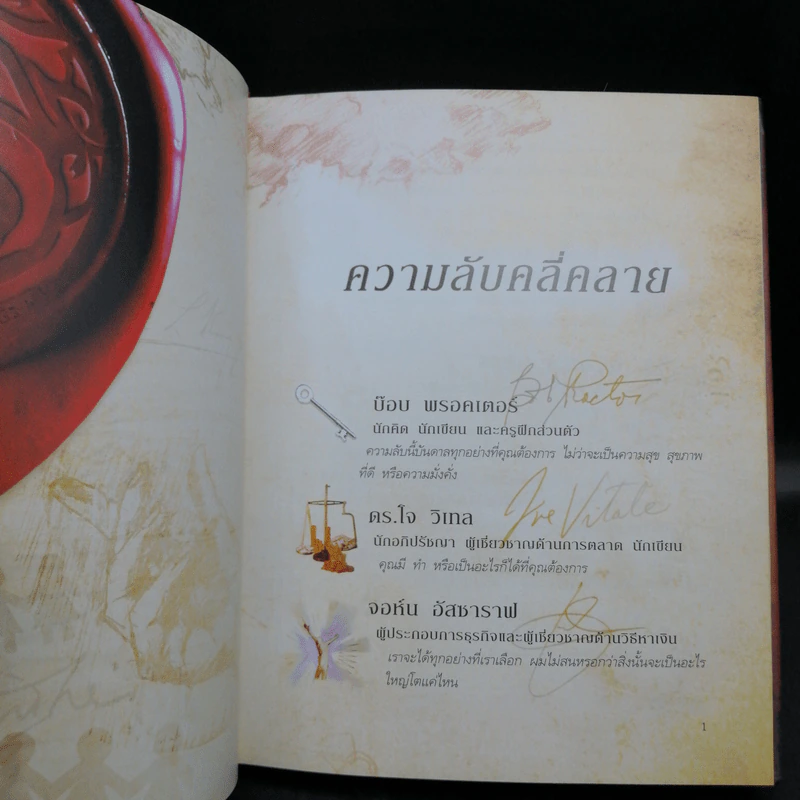 ความลับคลี่คลาย
บ๊อบ พรอคเตอร์
นักคิด นักเขียน และครูฝึกส่วนตัว
ความลับนี้บันดาลทุกอย่างที่คุณต้องการ ไม่ว่าจะเป็นความสุข สุขภาพ
ที่ดี หรือความมั่งคั่ง
ดร.โจ วิเทล
Joe Vitale
นักอภิปรัชญา ผู้เชี่ยวชาญด้านการตลาด นักเขียน
คุณมี ทำ หรือเป็นอะไรก็ได้ที่คุณต้องการ
จอห์น อัสซาราฟ
ผู้ประกอบการธุรกิจและผู้เชี่ยวชาญด้านวิธีหาเงิน
เราจะได้ทุกอย่างที่เราเลือก ผมไม่สนหรอกว่าสิ่งนั้นจะเป็นอะไร
ใหญ่โตแค่ไหน
1